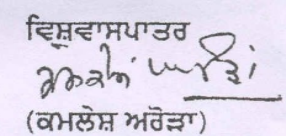 ਵਿਸ਼ਵਾਸਪਾਤਰ
(ਕਮਲੇਸ਼ ਅਰੋੜਾ)